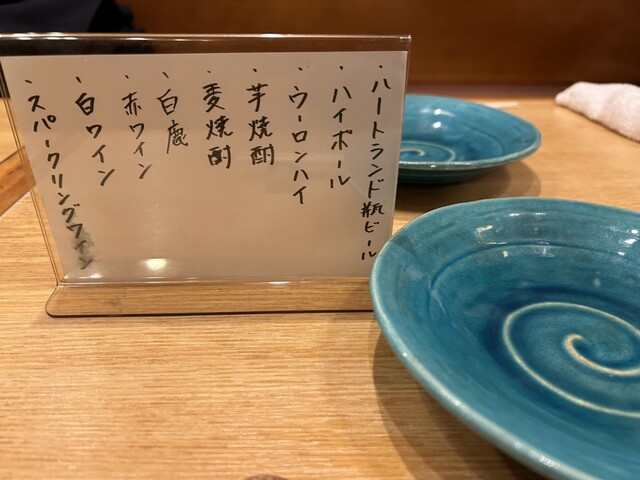 ・ハートランド瓶ビール
・ハイボール
・ウーロンハイ
・芋焼酎
・麦焼酎
・白鹿
・赤ワイン
・白ワイン
・スパークリングワイン